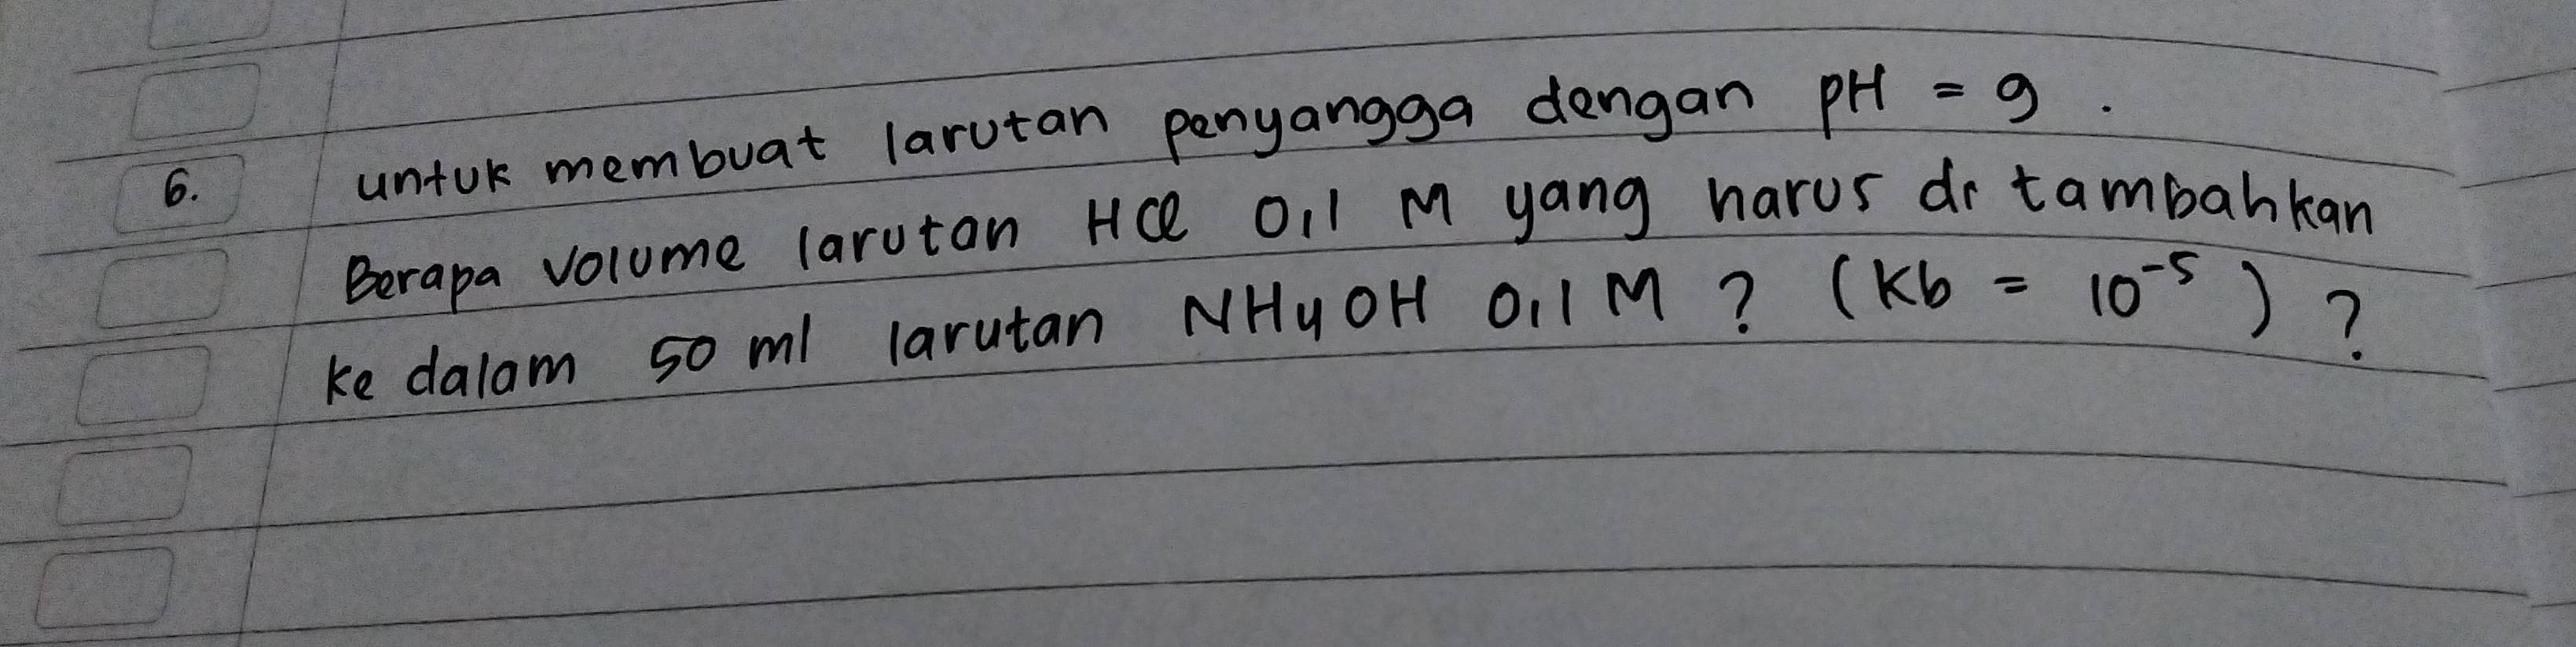 6. untuk membuat larutan penyangga dengan pH = 9 .
Berapa volume larutan HCl 0,1 M yang harus di tambahkan
ke dalam 50 ml larutan NH4OH 0,1 M ? (Kb = 10⁻⁵) ?